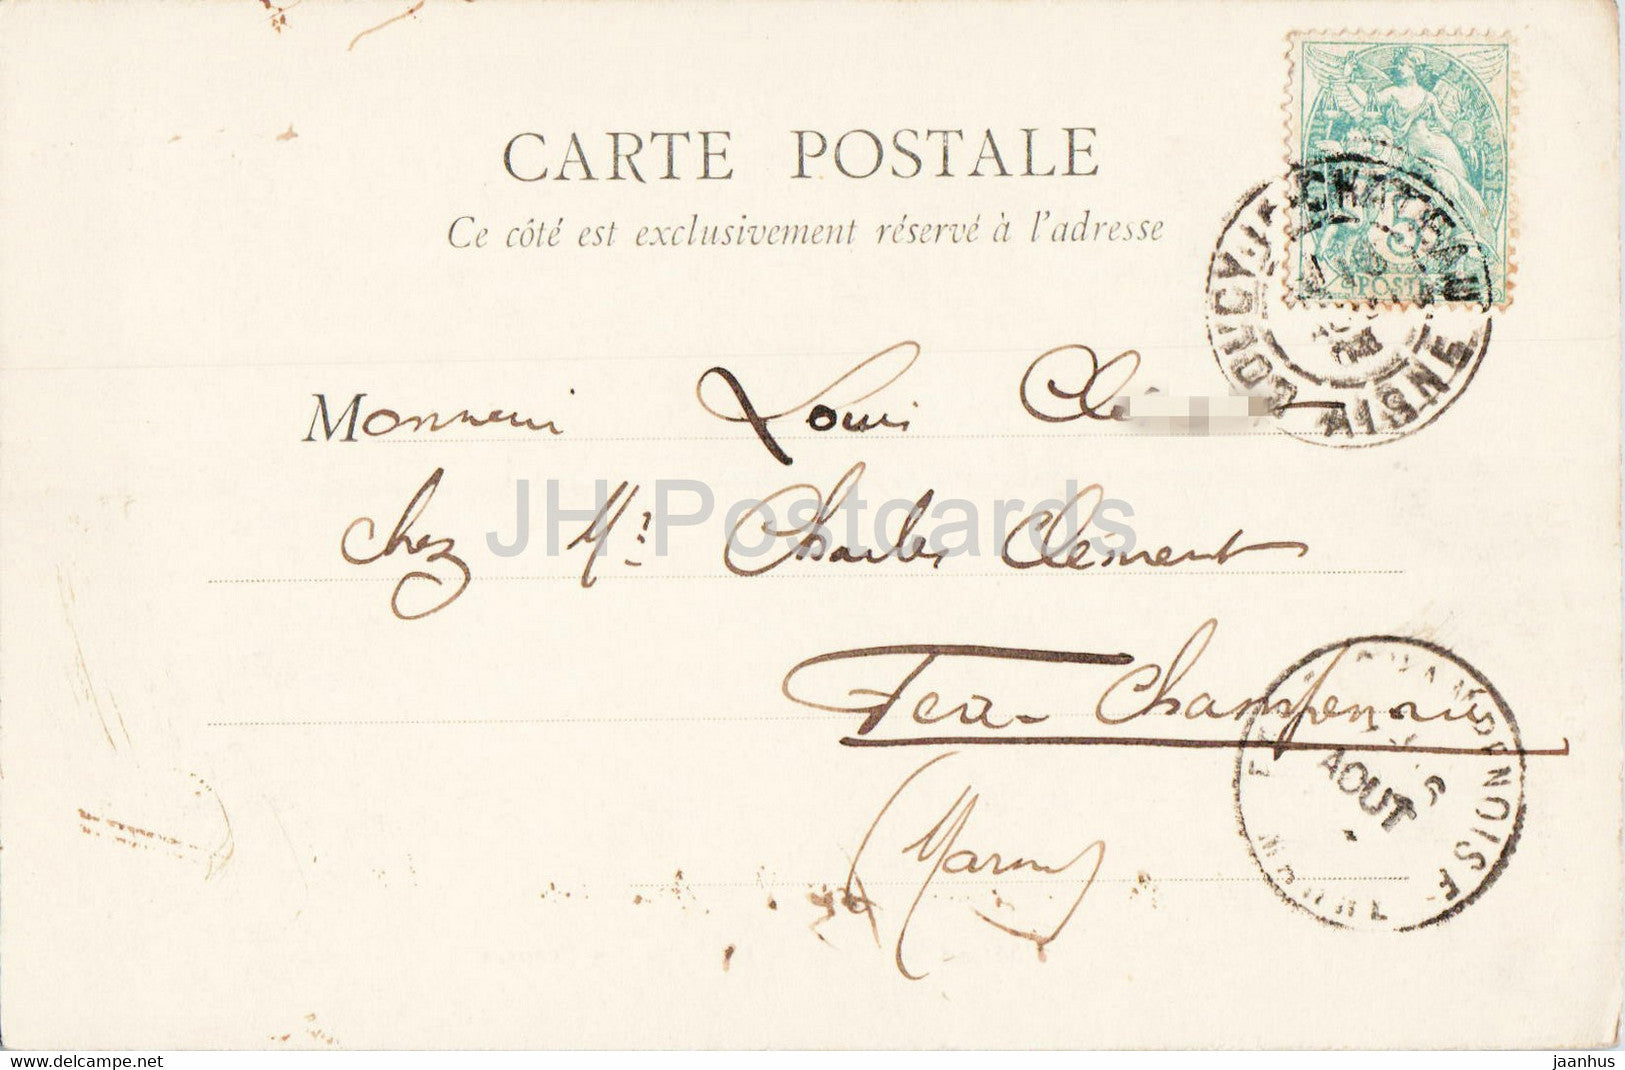 CARTE POSTALE
Ce côté est exclusivement réservé à l'adresse
POSTES
5
COUCY-LE-CHATEAU
AISNE
Monsieur Louis Clé
chez Mr. Charles Clément
Fère-Champenoise
(Marne)
FÈRE-CHAMPENOISE
AOUT
MARNE
JH Postcards
www.delcampe.net
jaanhus